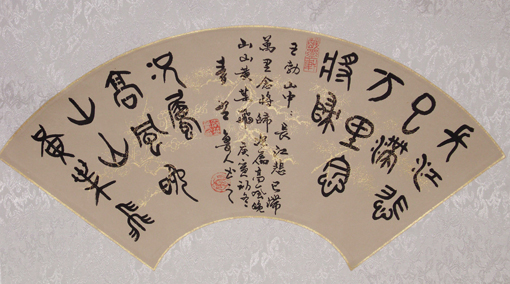 長江悲
已滯
万里念
將歸
況屬
高風晚
山山
黃葉飛
王勃山中：長江悲已滯
萬里念將歸況屬高風晚
山山黃葉飛庚寅初冬